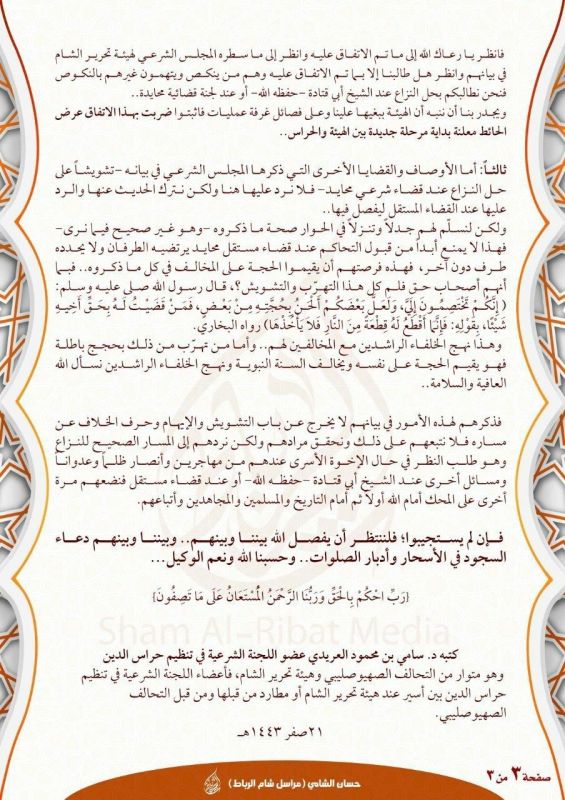 فانظر يا رعاك الله إلى ما تم الاتفاق عليه وانظر إلى ما سطره المجلس الشرعي لهيئة تحرير الشام
في بيانهم وانظر هل طالبنا إلا بما تم الاتفاق عليه وهم من ينكص ويتهمون غيرهم بالنكوص
فنحن نطالبكم بحل النزاع عند الشيخ أبي قتادة -حفظه الله- أو عند لجنة قضائية محايدة..
ويجدر بنا أن ننبه أن الهيئة ببغيها علينا وعلى فصائل غرفة عمليات فاثبتوا ضربت بهذا الاتفاق عرض
الحائط معلنة بداية مرحلة جديدة بين الهيئة والحراس..
ثالثاً: أما الأوصاف والقضايا الأخرى التي ذكرها المجلس الشرعي في بيانه -تشويشاً على
حل النزاع عند قضاء شرعي محايد- فلا نرد عليها هنا ولكن نترك الحديث عنها والرد
عليها عند القضاء المستقل ليفصل فيها..
ولكن لنسلّم لهم جدلاً وتنزلاً في الحوار صحة ما ذكروه -وهو غير صحيح فيما نرى-
فهذا لا يمنع أبداً من قبول التحاكم عند قضاء مستقل محايد يرتضيه الطرفان ولا يحدده
طرف دون آخر، فهذه فرصتهم أن يقيموا الحجة على المخالف في كل ما ذكروه.. فبما
أنهم أصحاب حق فلم كل هذا التهرّب والتشويش؟، قال رسول الله صلى عليه وسلم:
(إِنَّكُمْ تَخْتَصِمُونَ إِلَيَّ، وَلَعَلَّ بَعْضَكُمْ أَلْحَنُ بِحُجَّتِهِ مِنْ بَعْضٍ، فَمَنْ قَضَيْتُ لَهُ بِحَقِّ أَخِيهِ
شَيْئًا، بِقَوْلِهِ: فَإِنَّمَا أَقْطَعُ لَهُ قِطْعَةً مِنَ النَّارِ فَلاَ يَأْخُذْهَا) رواه البخاري.
وهذا نهج الخلفاء الراشدين مع المخالفين لهم.. وأما من تهرّب من ذلك بحجج باطلة
فهو يقيم الحجة على نفسه ويخالف السنة النبوية ونهج الخلفاء الراشدين نسأل الله
العافية والسلامة..
فذكرهم لهذه الأمور في بيانهم لا يخرج عن باب التشويش والإيهام وحرف الخلاف عن
مساره فلا نتبعهم على ذلك ونحقق مرادهم ولكن نردهم إلى المسار الصحيح للنزاع
وهو طلب النظر في حال الإخوة الأسرى عندهم من مهاجرين وأنصار ظلماً وعدواناً
ومسائل أخرى عند الشيخ أبي قتادة -حفظه الله- أو عند قضاء مستقل فنضعهم مرة
أخرى على المحك أمام الله أولا ثم أمام التاريخ والمسلمين والمجاهدين وأتباعهم.
فإن لم يستجيبوا؛ فلننتظر أن يفصل الله بيننا وبينهم.. وبيننا وبينهم دعاء
السجود في الأسحار وأدبار الصلوات.. وحسبنا الله ونعم الوكيل...
{رَبِّ احْكُمْ بِالْحَقِّ وَرَبُّنَا الرَّحْمَنُ الْمُسْتَعَانُ عَلَى مَا تَصِفُونَ}
Sham Al-Ribat Media
كتبه د. سامي بن محمود العريدي عضو اللجنة الشرعية في تنظيم حراس الدين
وهو متوار من التحالف الصهيوصليبي وهيئة تحرير الشام، فأعضاء اللجنة الشرعية في تنظيم
حراس الدين بين أسير عند هيئة تحرير الشام أو مطارد من قبلها ومن قبل التحالف
الصهيوصليبي.
٢١ صفر ١٤٤٣هـ
صفحة ٣ من ٣
حسان الشامي (مراسل شام الرباط)